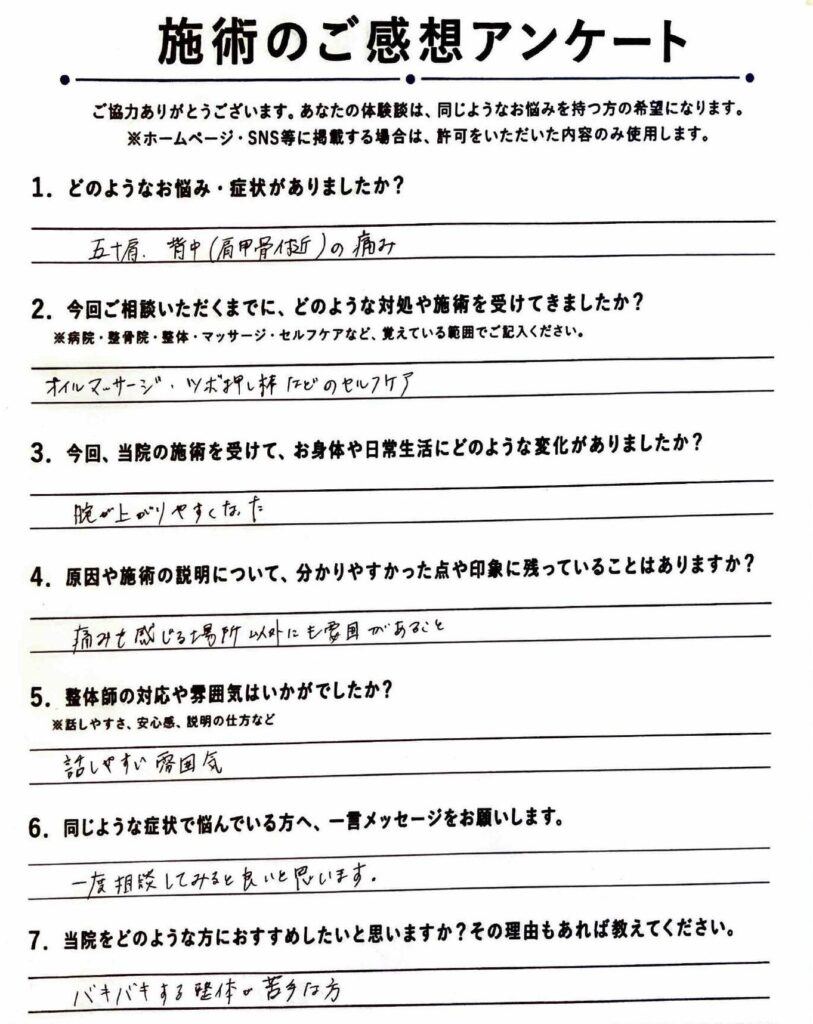 施術のご感想アンケート
ご協力ありがとうございます。あなたの体験談は、同じようなお悩みを持つ方の希望になります。
※ホームページ・SNS等に掲載する場合は、許可をいただいた内容のみ使用します。
1. どのようなお悩み・症状がありましたか？
五十肩、背中(肩甲骨付近)の痛み
2. 今回ご相談いただくまでに、どのような対処や施術を受けてきましたか？
※病院・整骨院・整体・マッサージ・セルフケアなど、覚えている範囲でご記入ください。
オイルマッサージ・ツボ押し棒などのセルフケア
3. 今回、当院の施術を受けて、お身体や日常生活にどのような変化がありましたか？
腕が上がりやすくなった
4. 原因や施術の説明について、分かりやすかった点や印象に残っていることはありますか？
痛みを感じる場所以外にも要因があること
5. 整体師の対応や雰囲気はいかがでしたか？
※話しやすさ、安心感、説明の仕方など
話しやすい雰囲気
6. 同じような症状で悩んでいる方へ、一言メッセージをお願いします。
一度相談してみると良いと思います。
7. 当院をどのような方におすすめしたいと思いますか？その理由もあれば教えてください。
バキバキする整体が苦手な方